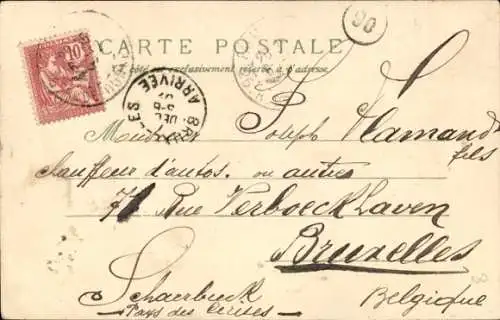 90
10
CARTE POSTALE
Ce côté est exclusivement réservé à l'adresse
BRUXELLES
ARRIVÉE
Joseph Flamand
fils
chauffeur d'autos. ou autres
71 Rue Verboeckhaven
Bruxelles
Schaerbeek
Pays des Cerises
Belgique